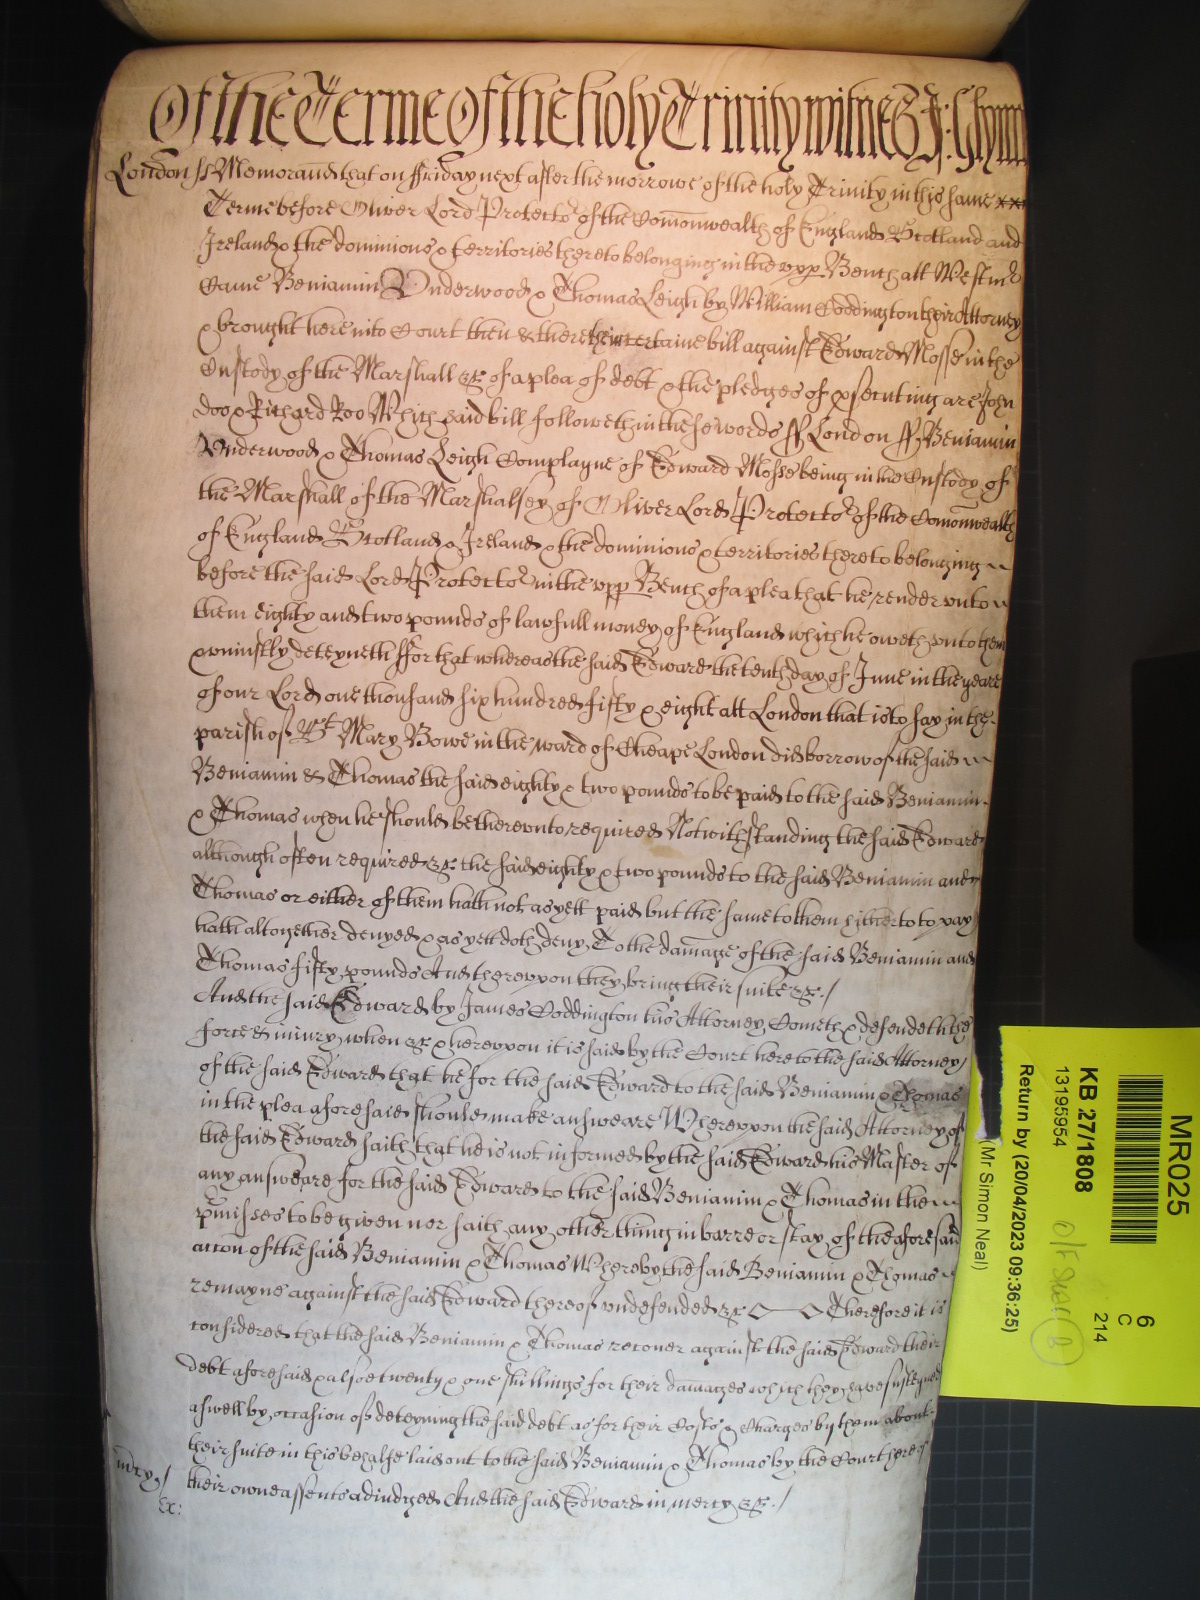 Of the Terme Of the holy Trinity witnes J: Glynn
London ss Memorand that on ffriday next after the morrowe of the holy Trinity in this same
Terme before Oliver Lord Protector of the Comonwealth of England Scotland and
Ireland & the dominions & territories thereto belonging in the upp Bench att Westmr
Came Beniamin Underwood & Thomas Leigh by William Coddington their Attorney
& brought here into Court then & there their certaine bill against Edward Mosse in the
Custody of the Marshall &c of a plea of debt & the pledges of psecuting are John
doo & Richard Roo Which said bill followeth in these words ss London ss Beniamin
Underwood & Thomas Leigh Complayne of Edward Mosse being in the Custody of
the Marshall of the Marshalsey of Oliver Lord Protector of the Comonwealth
of England Scotland & Ireland & the dominions & territories thereto belonging
before the said Lord Protector in the upp Bench of a plea that he render unto
them eighty and two pounds of lawfull money of England which he oweth unto them
& uniustly deteyneth ffor that whereas the said Edward the tenth day of June in the yeare
of our Lord one thousand six hundred fifty & eight att London that is to say in the
parish of St Mary Bowe in the ward of Cheape London did borrow of the said
Beniamin & Thomas the said eighty & two pounds to be paid to the said Beniamin
& Thomas when he should be thereunto required Notwithstanding the said Edward
although often required &c the said eighty & two pounds to the said Beniamin and
Thomas or either of them hath not as yett paid but the same to them hitherto to pay
hath altogether denyed & as yett doth deny To the damage of the said Beniamin and
Thomas fifty pounds And thereupon they bring their suite &c./
And the said Edward by James Coddington his Attorney Cometh & defendeth the
force & iniury when &c & hereupon it is said by the Court here to the said Attorney
of the said Edward that he for the said Edward to the said Beniamin & Thomas
in the plea aforesaid should make answeare Whereupon the said Attorney of
the said Edward saith that he is not informed by the said Edward his Master of
any answeare for the said Edward to the said Beniamin & Thomas in the
pmisses to be given nor saith any other thing in barre or stay of the aforesaid
accon of the said Beniamin & Thomas Whereby the said Beniamin & Thomas
remayne against the said Edward thereof undefended &c Therefore it is
considered that the said Beniamin & Thomas recover against the said Edward their
debt aforesaid & alsoe twenty & one shillings for their damages which they have susteyned
aswell by occasion of deteyning the said debt as for their Costs & Charges by them about
their suite in this behalfe laid out to the said Beniamin & Thomas by the Court here of
mcy/ their owne assents adiudged And the said Edward in mercy &c./
Ex:
MR025
KB 27/1808
13195954
6
C
214
(Mr Simon Neal)
Return by (20/04/2023 09:36:25)